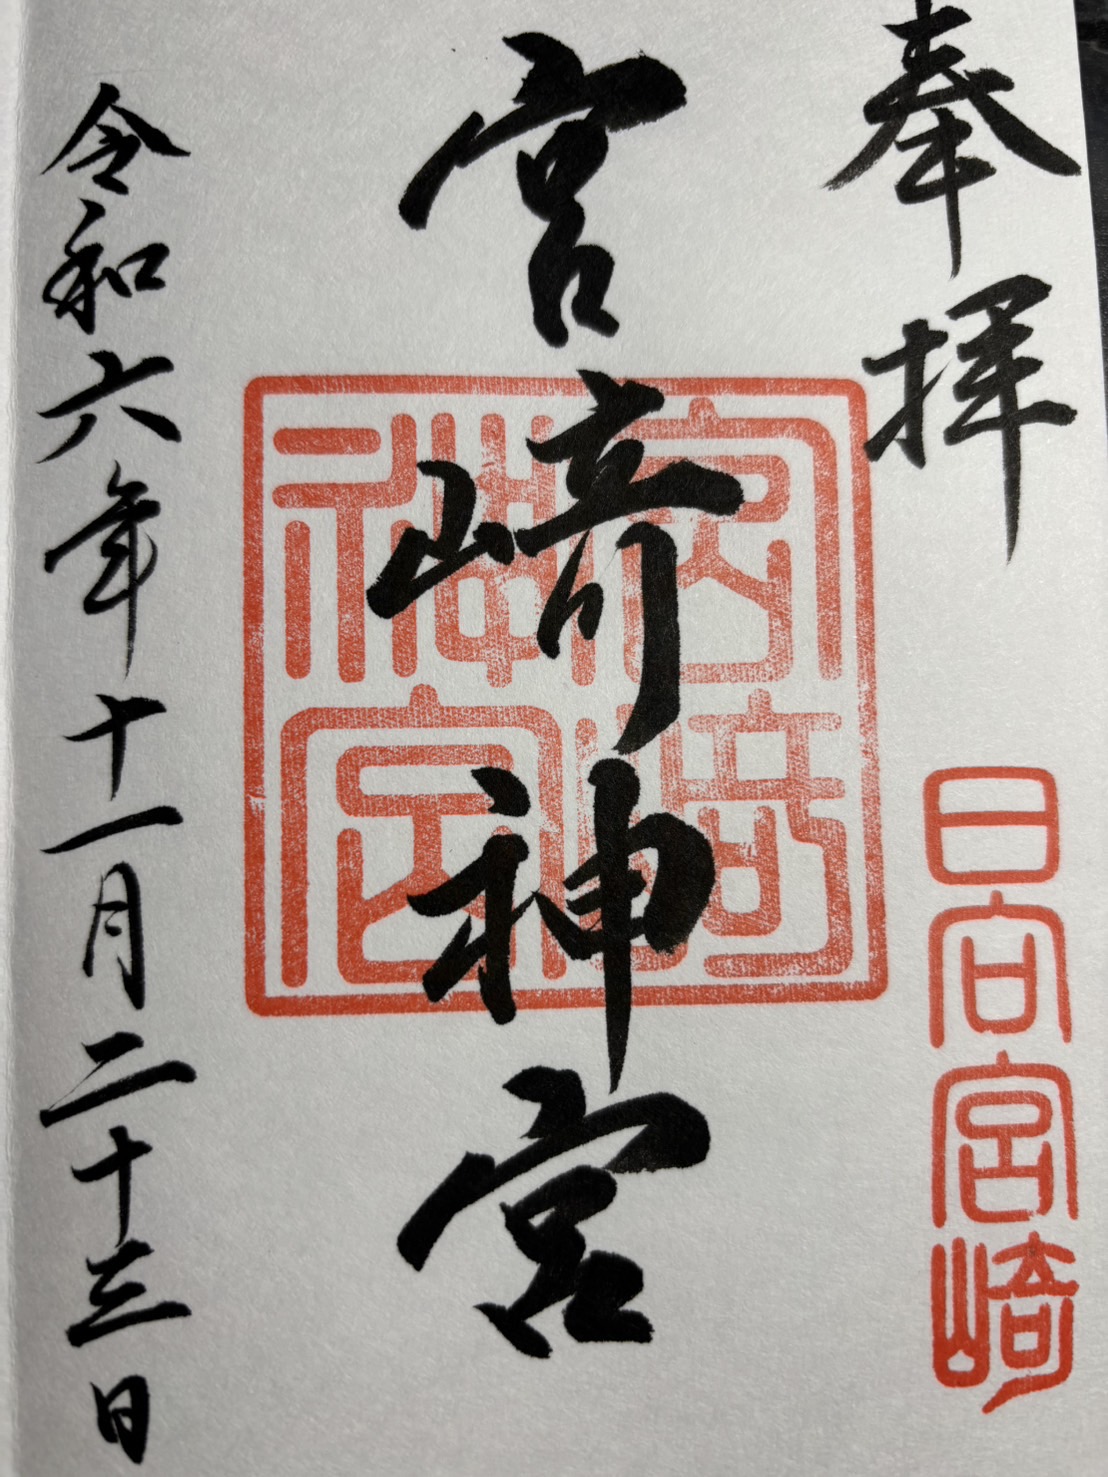 奉拝
日向宮崎
宮崎神宮
宮崎神宮
令和六年十一月二十三日